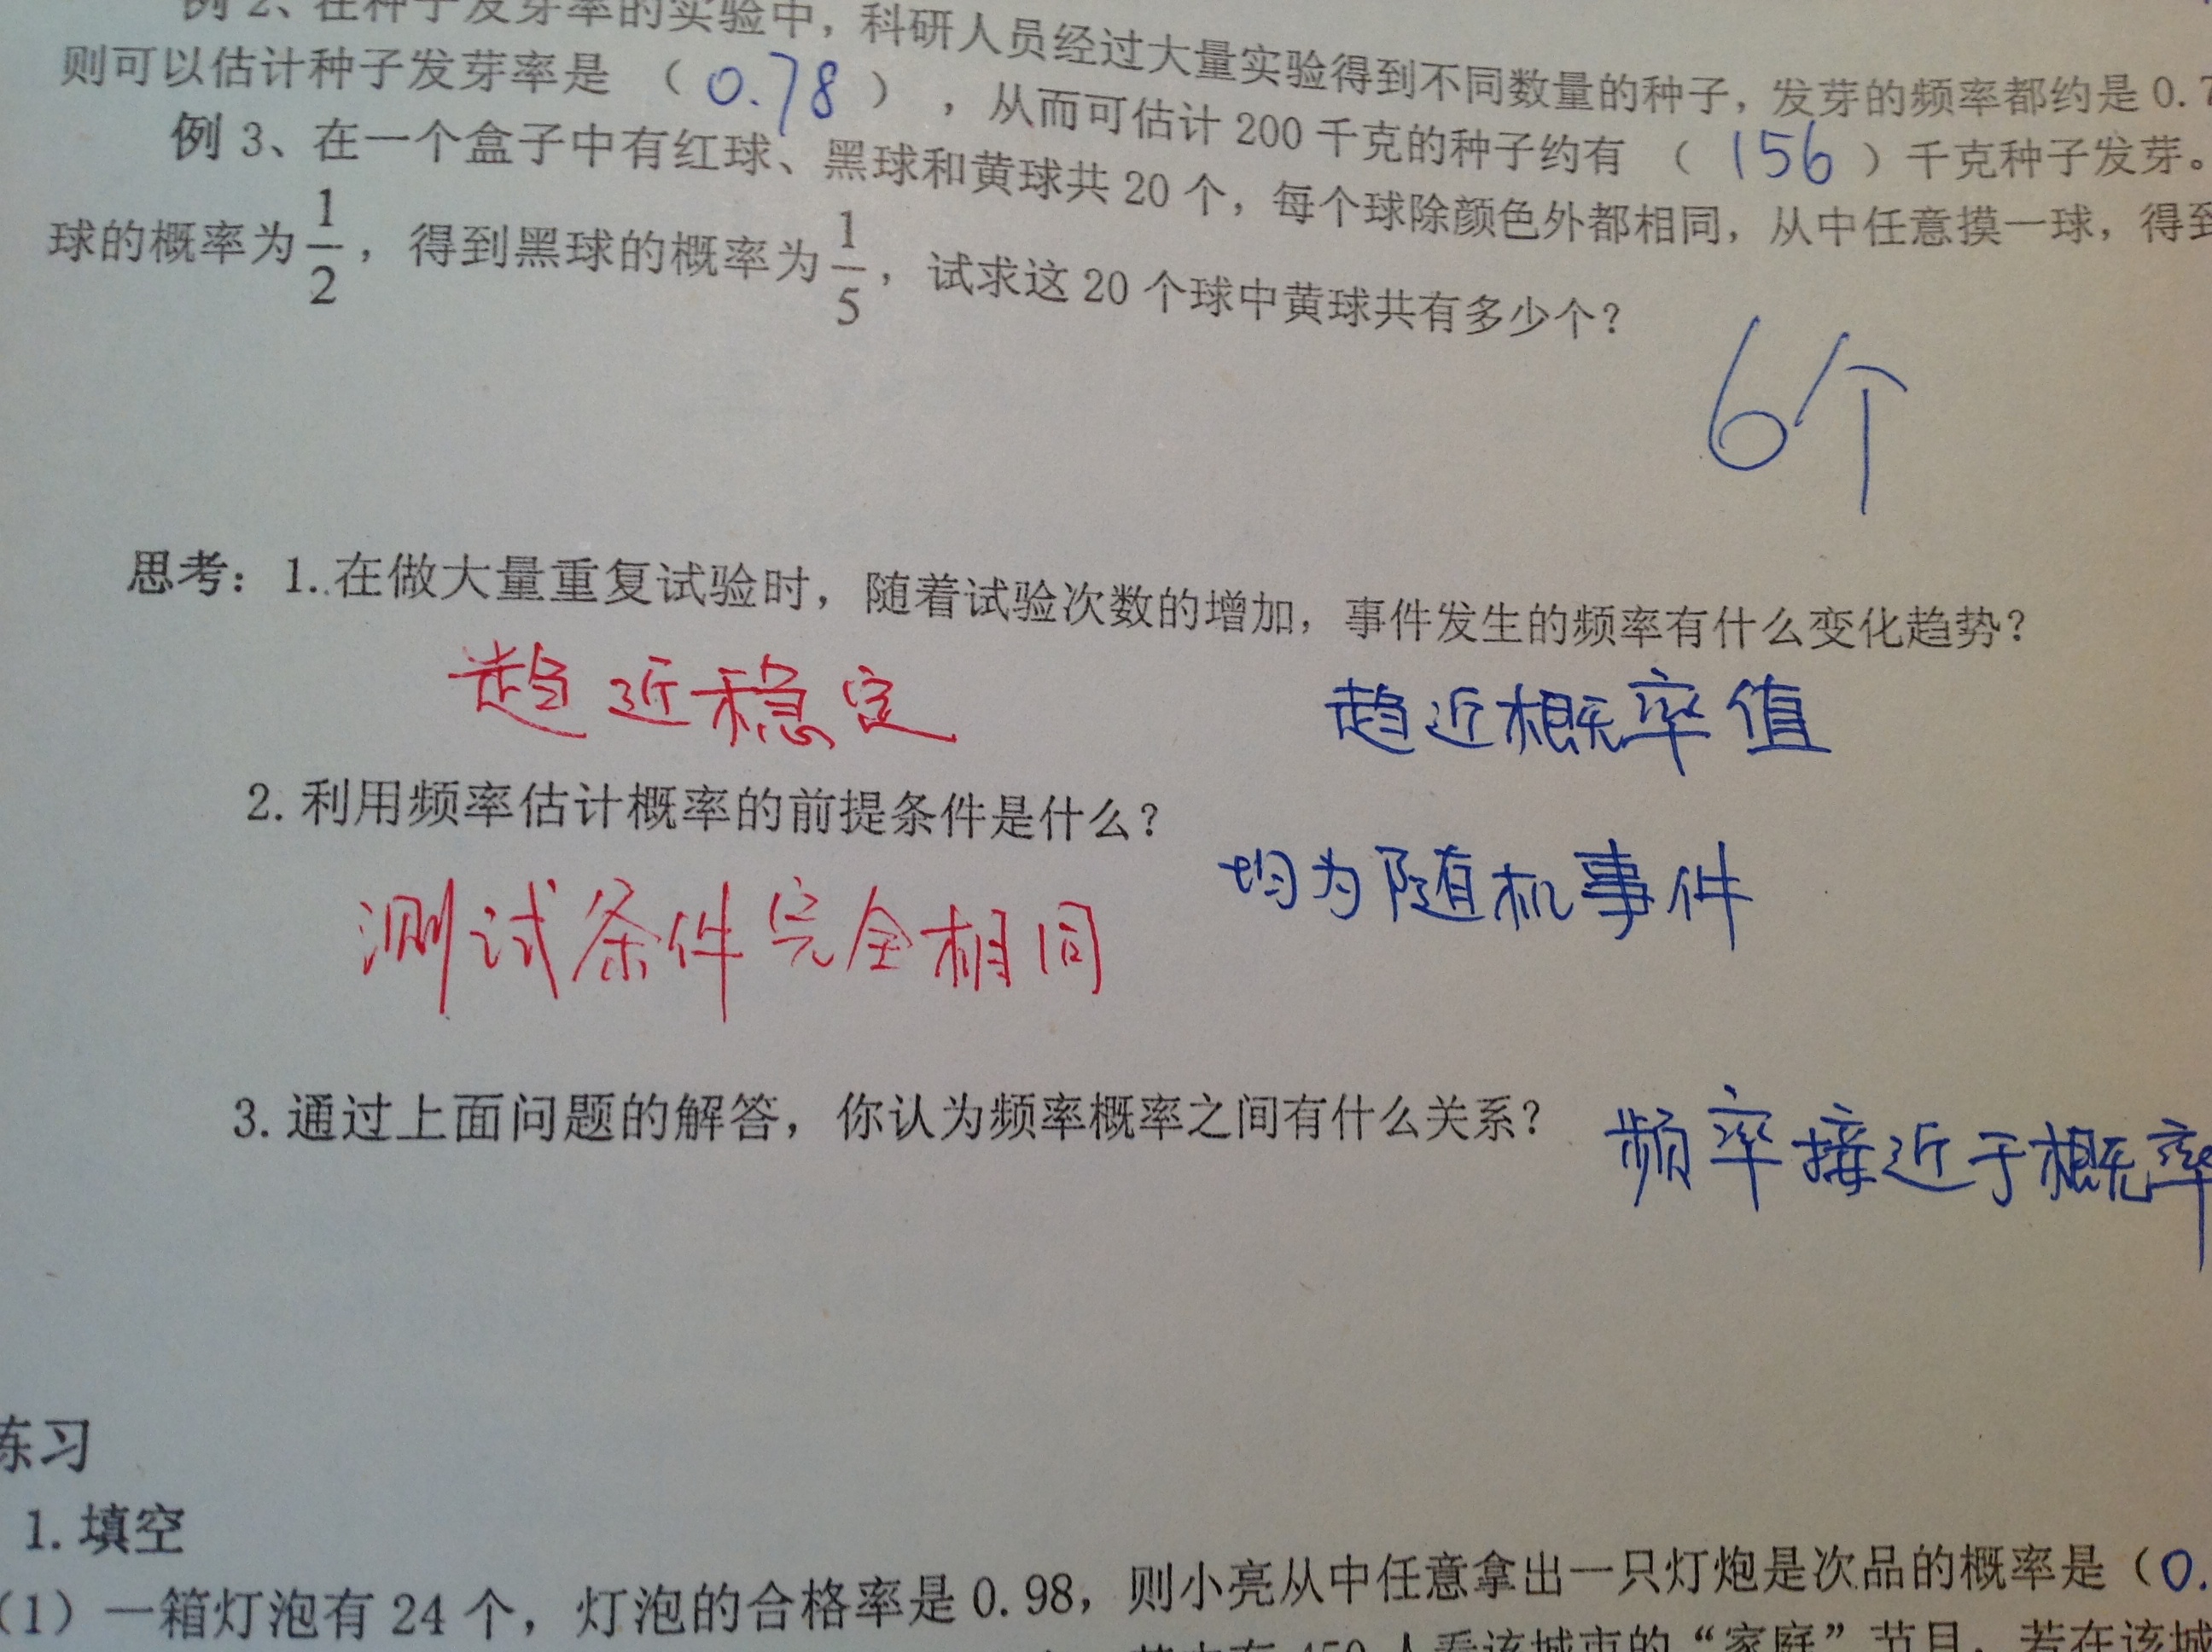 例2、在种子发芽率的实验中，科研人员经过大量实验得到不同数量的种子，发芽的频率都约是0.7
则可以估计种子发芽率是（0.78），从而可估计200千克的种子约有（156）千克种子发芽。
例3、在一个盒子中有红球、黑球和黄球共20个，每个球除颜色外都相同，从中任意摸一球，得到
球的概率为1/2，得到黑球的概率为1/5，试求这20个球中黄球共有多少个？
6个
思考：1.在做大量重复试验时，随着试验次数的增加，事件发生的频率有什么变化趋势？
趋近稳定 趋近概率值
2.利用频率估计概率的前提条件是什么？
均为随机事件
测试条件完全相同
3.通过上面问题的解答，你认为频率概率之间有什么关系？
频率接近于概率
练习
1.填空
（1）一箱灯泡有24个，灯泡的合格率是0.98，则小亮从中任意拿出一只灯炮是次品的概率是（0.
450人看该城市的“家庭”节目，若在该城